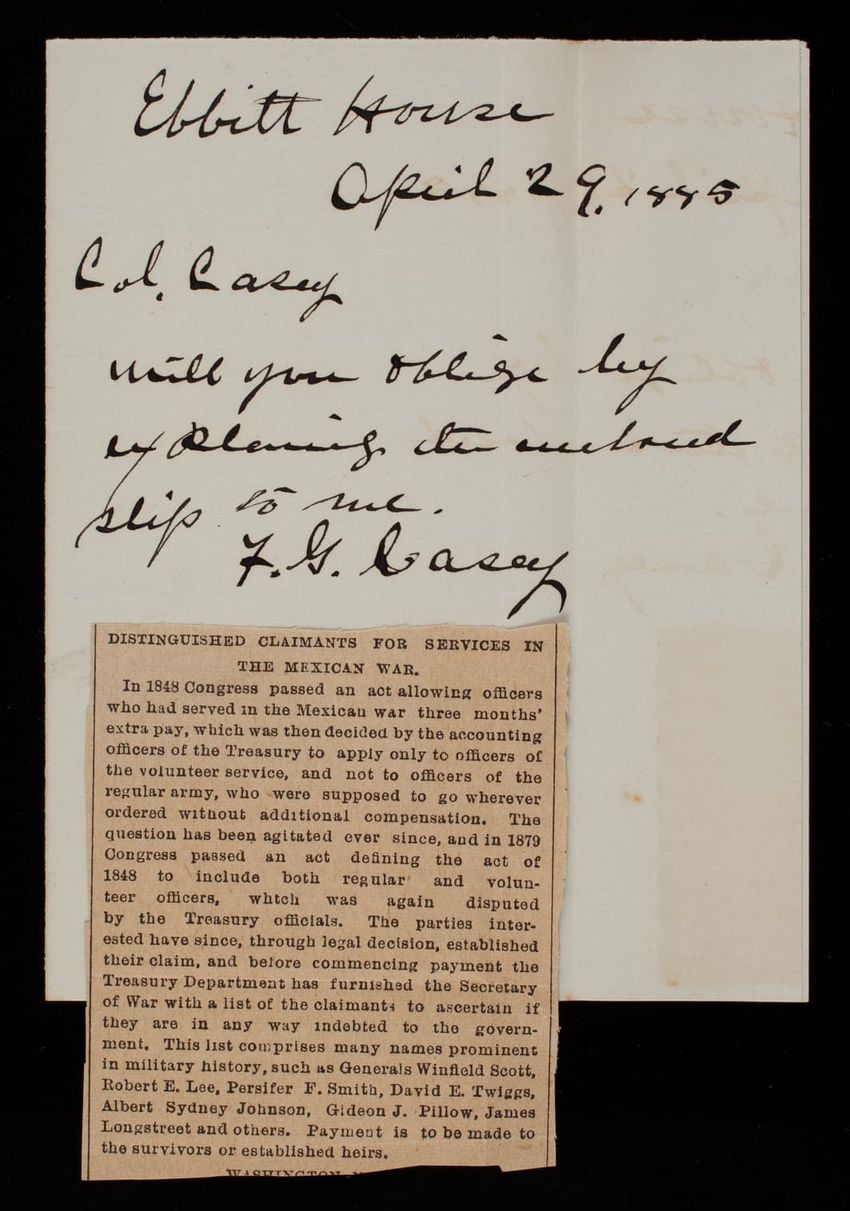 Ebbitt House
April 29, 1885
Col. Casey
will you oblige by
explaining the enclosed
slip to me.
F. G. Casey
DISTINGUISHED CLAIMANTS FOR SERVICES IN
THE MEXICAN WAR.
In 1848 Congress passed an act allowing officers
who had served in the Mexican war three months'
extra pay, which was then decided by the accounting
officers of the Treasury to apply only to officers of
the volunteer service, and not to officers of the
regular army, who were supposed to go wherever
ordered without additional compensation. The
question has been agitated ever since, and in 1879
Congress passed an act defining the act of
1848 to include both regular and volun-
teer officers, whtch was again disputed
by the Treasury officials. The parties inter-
ested have since, through legal decision, established
their claim, and before commencing payment the
Treasury Department has furnished the Secretary
of War with a list of the claimants to ascertain if
they are in any way indebted to the govern-
ment. This list comprises many names prominent
in military history, such as Generals Winfield Scott,
Robert E. Lee, Persifer F. Smith, David E. Twiggs,
Albert Sydney Johnson, Gideon J. Pillow, James
Longstreet and others. Payment is to be made to
the survivors or established heirs.
WASHINGTON